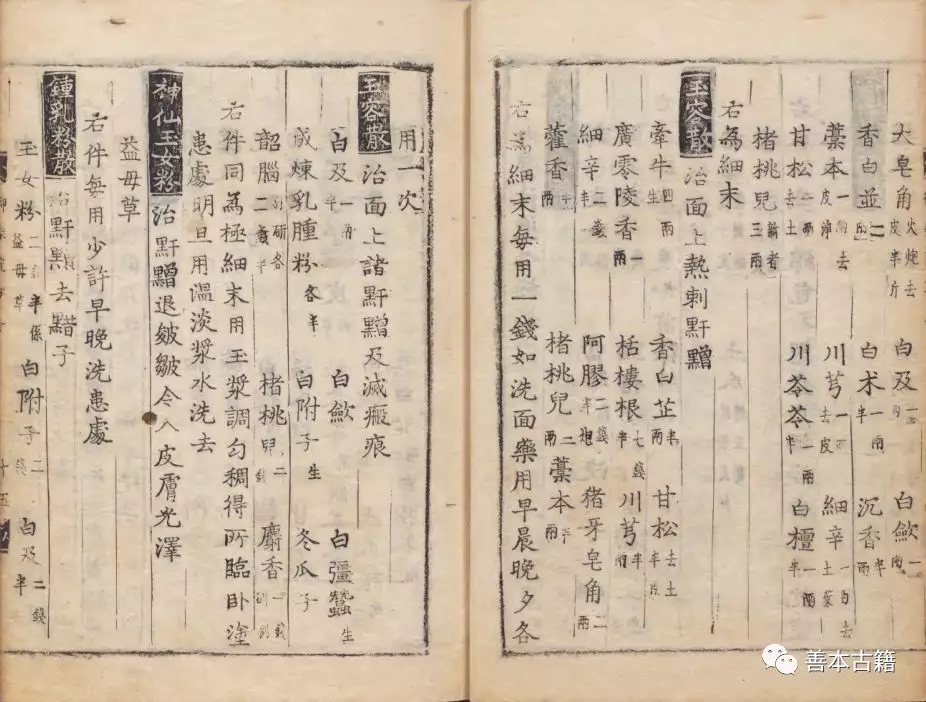 大皂角火炮去皮半斤 白及一兩 白斂一兩
香白並二兩 白术一兩半 沉香半兩
藁本一兩去皮淨 川芎一兩去皮 細辛一兩去土葉
甘松二兩去土 川苓苓一兩半 白檀一兩半
楮桃兒新者三兩
右為細末
玉容散 治面上熱刺䵟䵳
牽牛四兩生 香白芷半兩 甘松去土半兩
廣零陵香一兩 栝樓根七錢半 川芎半兩
細辛二錢半 阿膠二錢半 猪牙皂角二兩
藿香半兩 楮桃兒二兩 藁本半兩
右為細末每用一錢如洗面藥用早晨晚夕各
用一次
玉容散 治面上諸䵟䵳及滅瘢痕
白及一兩 白斂 白彊蠶生
成煉乳腫粉各半 白附子生 冬瓜子
韶腦二錢半別研各 楮桃兒二錢 麝香一錢別
右件同為極細末用玉漿調勻稠得所臨卧塗
患處明旦用溫淡漿水洗去
神仙玉女粉 治䵟䵳退皴皺令人皮膚光澤
益母草
右件每用少許早晚洗患處
鍾乳粉散 治䵟去黯子
玉女粉二錢半係益母草 白附子二錢 白及二錢半
十五
善本古籍